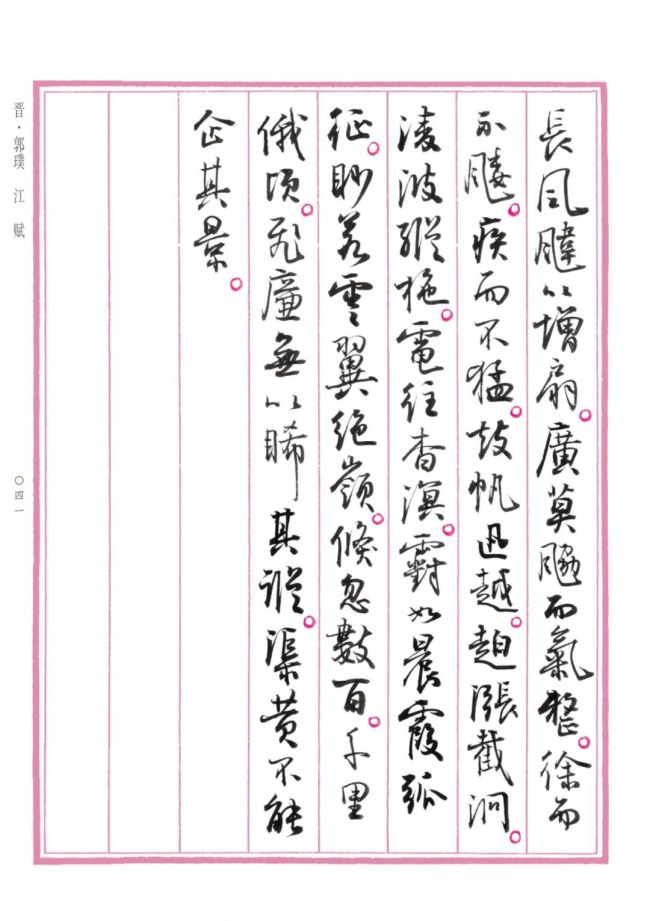 長風颹以增扇。廣莫䬅而氣整。徐而
不。疾而不猛。鼓帆迅越。趠漲截泂。
淩波縱拖。電往杳溟。䨴如晨霞孤
征。眇若雲翼絕嶺。倏忽數百。千里
俄頃。飛廉無以睎其蹤。渠黃不能
企其景。
晋·郭璞 江賦
〇四一